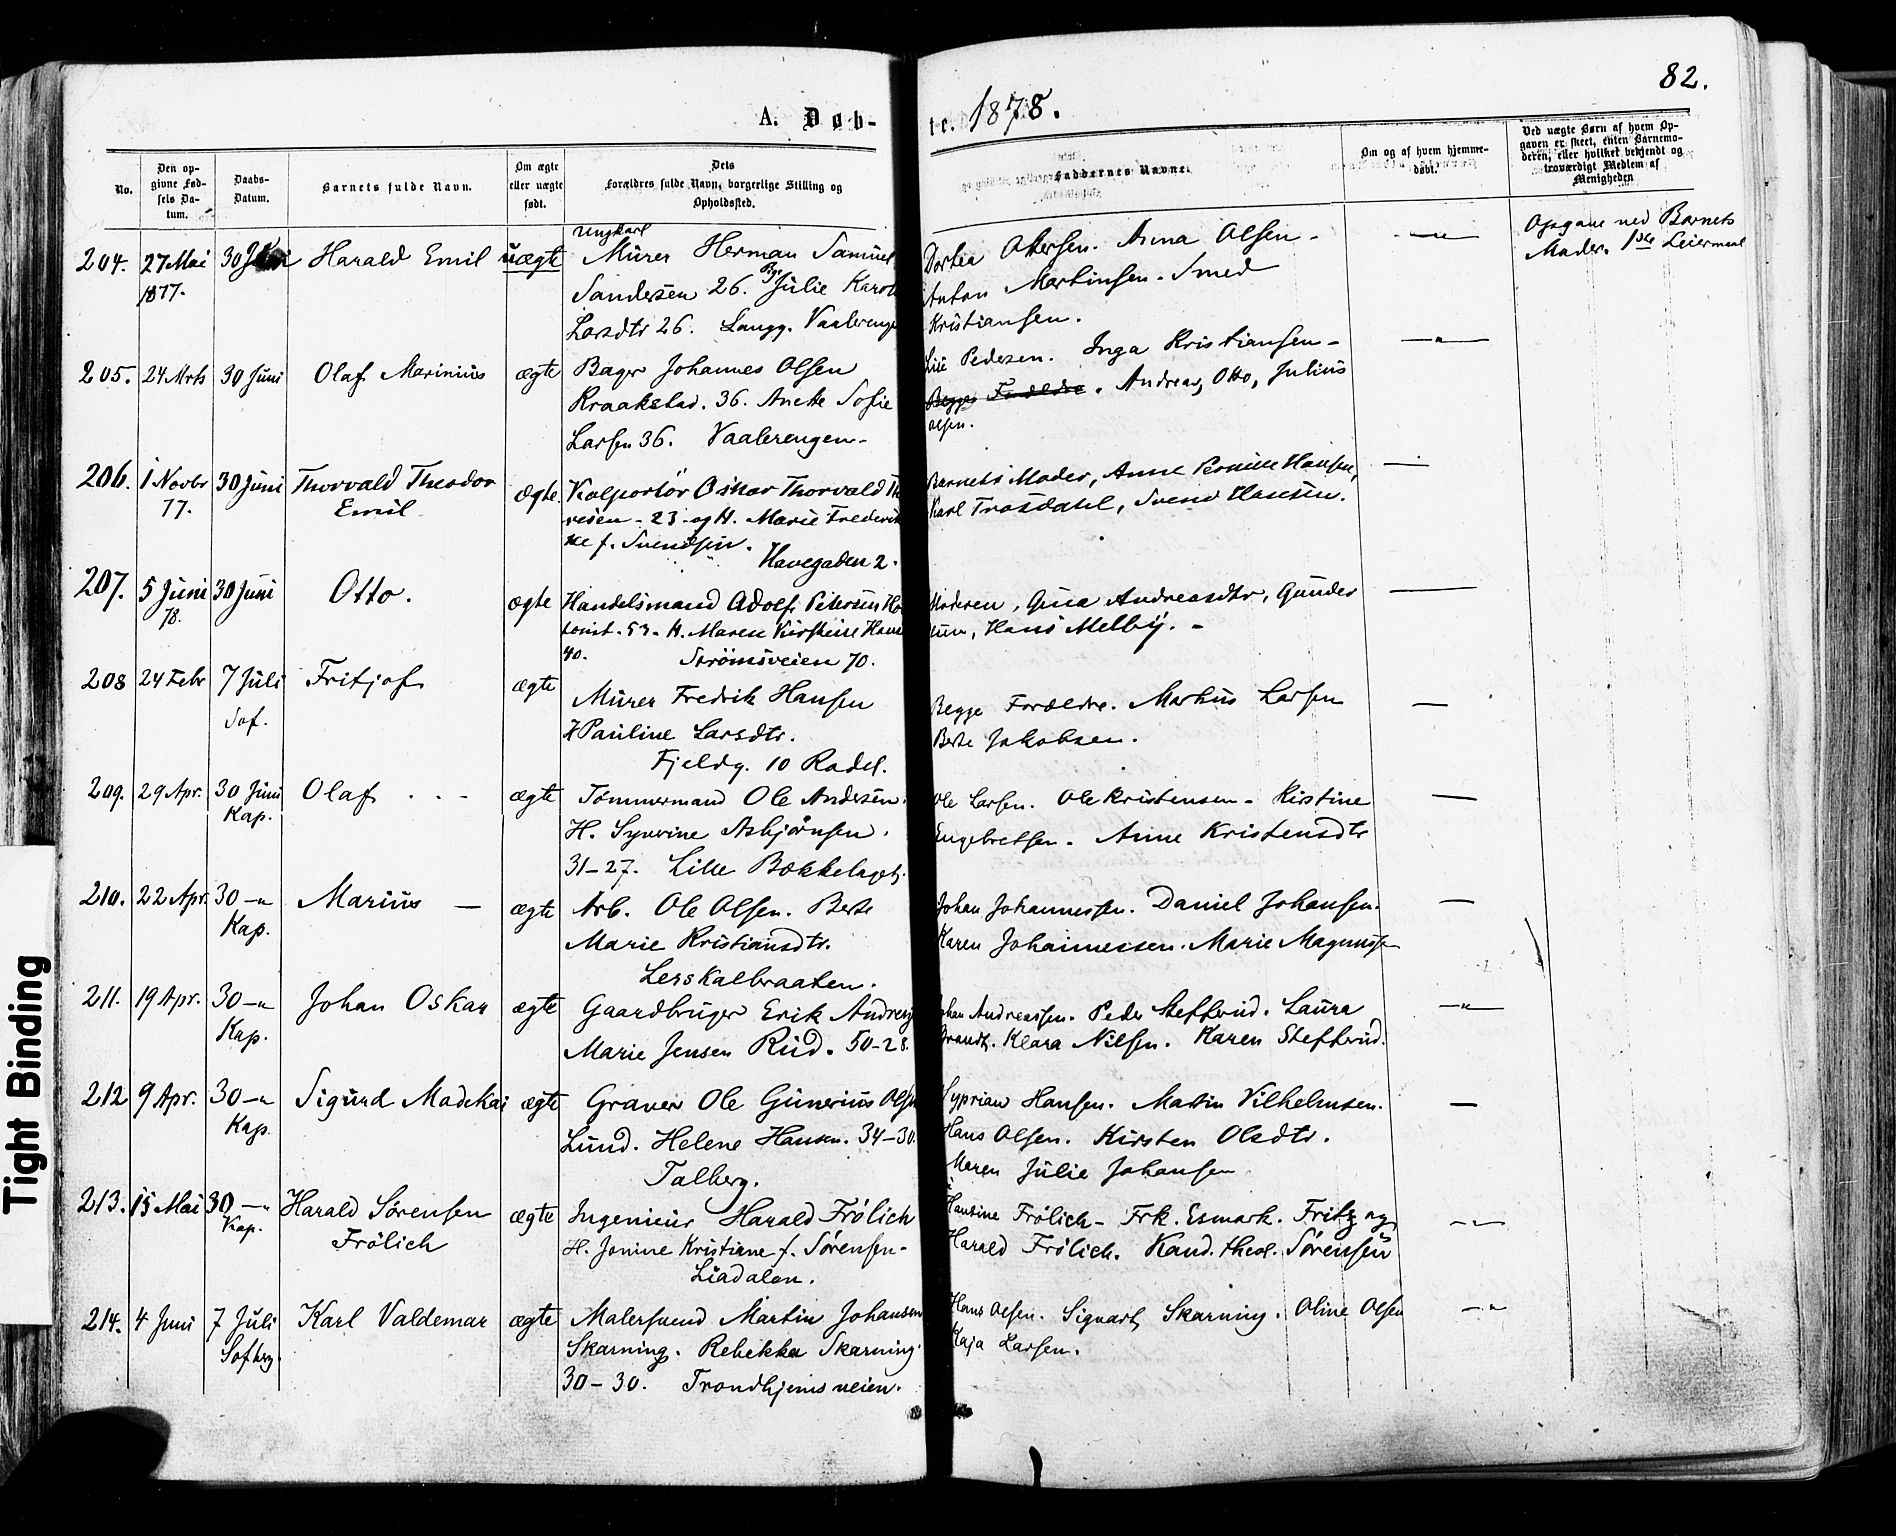 82.
A. Døb-
te. 1878.
No.
Den op-
givne Fød-
sels Da-
tum.
Daabs-
Datum.
Barnets fulde Navn.
Om ægte
eller uægte
født.
Dets
Forældres fulde Navn, borgerlige Stilling og
Opholdssted.
Faddernes Navne.
Om og af hvem hjemme-
døbt.
Ved uægte Børn af hvem Op-
gaven er skeet, enten Barnemo-
deren, eller hvilket bekjendt og
troværdigt Medlem af
Menigheden
204. 27 Mai 30 Harald Emil uægte
1877.
Ungkarl
Murer Herman Samuel
Sandersen 26. Pge Julie Karol
Larsdtr 26. Langg. Vaalerenge
Dortea Ottersen. Anna Olsen -
Anton Martinsen. Smed
Kristiansen.
Opgave ved Barnets
Moder. 1ste Leiermaal
205. 24 Mrts 30 Juni Olaf Marinius ægte
Bager Johannes Olsen
Kraakstad. 36. Anette Sofie
Larsen 36. Vaalerengen -
Lise Pedersen. Inga Kristiansen -
Begge Forældre. Andreas, Otto, Julius
Olsen.
206. 1 Novbr 30 Juni Thorvald Theodor ægte
77. Emil
Kolportør Oskar Thorvald Th
resen - 23 - og H. Marie Frederik
ke f. Svendsen.
Havegaden 2.
Barnets Moder, Anne Pernille Hansen,
Karl Trosdahl, Svend Hansen.
207. 5 Juni 30 Juni Otto. ægte
78.
Handelsmand Adolf Petersen Ho
tomt. 53 - H. Maren Kirstine Hans
40. Strømsveien 70.
Moderen, Gina Andreasdtr, Gunder
sen, Hans Melby. -
208 24 Febr 7 Juli Fritjof ægte
Sof.
Murer Fredrik Hansen
H Pauline Larsdtr.
Fjeldg. 10 Radel.
Begge Forældre. Markus Larsen
Berte Jakobsen.
209. 29 Apr. 30 Juni Olaf ægte
Kap.
Tømmermand Ole Andersen.
H. Synvine Asbjørnsen.
31-27. Lille Bækkelaget.
Ole Larsen. Ole Kristensen - Kirstine
Engebretsen. Anne Kristensdtr
210. 22 Apr. 30 -"- Marius — ægte
Kap.
Arb. Ole Olsen. Berte
Marie Kristiansdtr.
Lerskalbraaten.
Johan Johannessen. Daniel Johansen.
Karen Johannessen. Marie Magnussen
211. 19 Apr. 30 -"- Johan Oskar ægte
Kap.
Gaardbruger Erik Andreas
Marie Jensen Rud. 50-28.
Johan Andreassen. Peder Steffrud. Laura
Brandt. Klara Nilsen. Karen Steffrud.
212 9 Apr. 30 -"- Sigurd Madekai ægte
Kap.
Graver Ole Gunerius Olsen
Lund. Helene Hansen. 34-30.
Talberg.
Syprian Hansen. Martin Vilhelmsen.
Hans Olsen. Kirsten Olsdtr.
Maren Julie Johansen
213. 15 Mai 30 -"- Harald Sørensen ægte
Kap. Frølich
Ingeniør Harald Frølich
H. Jonine Kristiane f. Sørensen -
Liadalen.
Hansine Frølich - Frk. Esmark. Fritz og
Harald Frølich. Kand. theol. Sørensen
214. 4 Juni 7 Juli Karl Valdemar ægte
Sofbrg.
Malersvend Martin Johansen
Skarning. Rebekka Skarning.
30-30. Trondhjemsveien.
Hans Olsen. Sigvart Skarning. Oline Olsen
Kaja Larsen.
Tight Binding